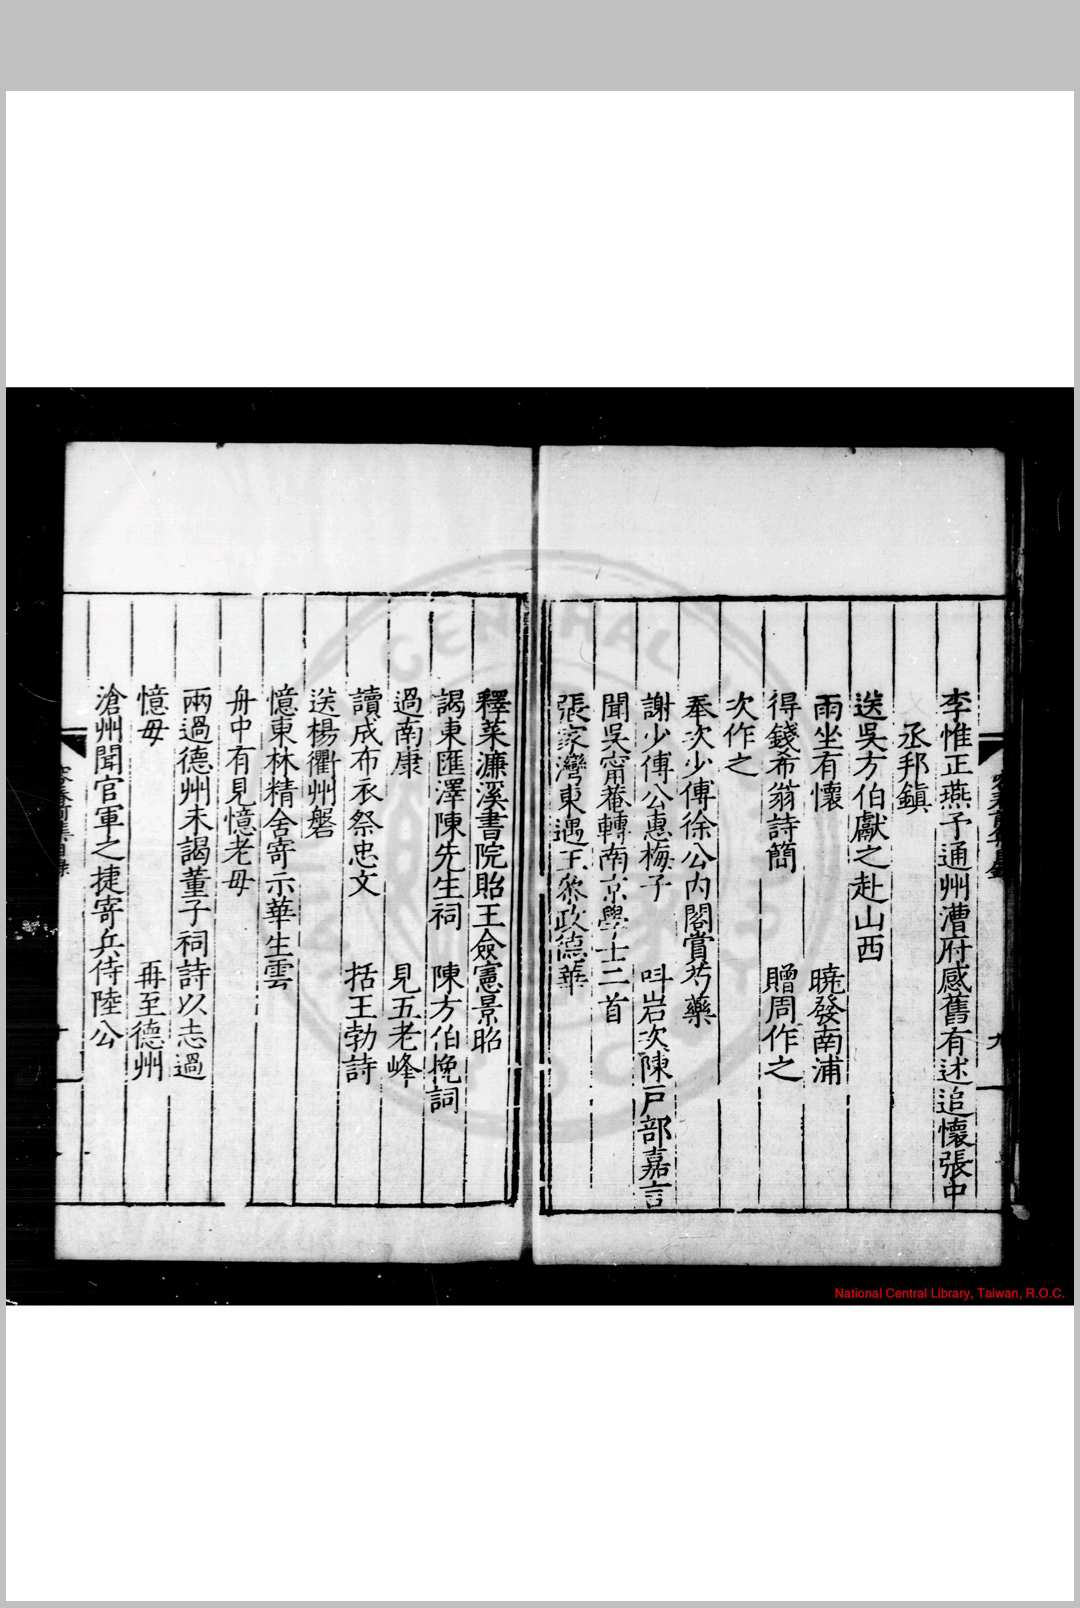 李惟正燕予通州漕府感舊有述追懷張中
丞邦鎮
送吳方伯獻之赴山西
雨坐有懷 曉發南浦
得錢希翁詩簡 贈周作之
次作之
奉次少傅徐公內閣賞芍藥
謝少傅公惠梅子 呌岩次陳戶部嘉言
聞吳甯菴轉南京學士二首
張家灣東遇王叅政德華
九
釋菜濂溪書院貽王僉憲景昭
謁東匯澤陳先生祠 陳方伯挽詞
過南康 見五老峰
讀成布衣祭忠文 括王勃詩
送楊衢州磐
憶東林精舍寄示華生雲
舟中有見憶老母
兩過德州未謁董子祠詩以志過
憶母 再至德州
滄州聞官軍之捷寄兵侍陸公
National Central Library, Taiwan, R.O.C.